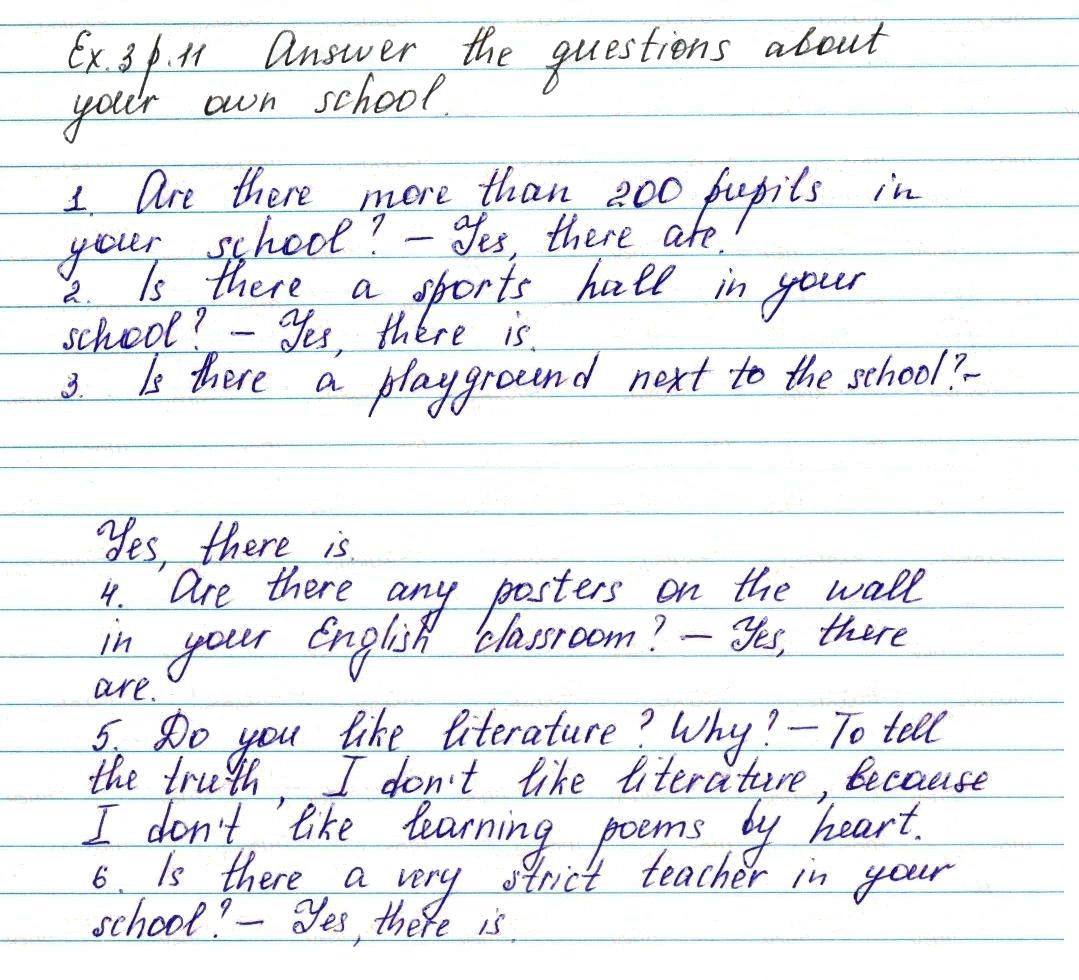 Ex. 3 p. 11 Answer the questions about
your own school.
1. Are there more than 200 pupils in
your school? – Yes, there are.
2. Is there a sports hall in your
school? – Yes, there is.
3. Is there a playground next to the school? –
Yes, there is.
4. Are there any posters on the wall
in your English classroom? – Yes, there
are.
5. Do you like literature? Why? – To tell
the truth, I don't like literature, because
I don't like learning poems by heart.
6. Is there a very strict teacher in your
school? – Yes, there is.